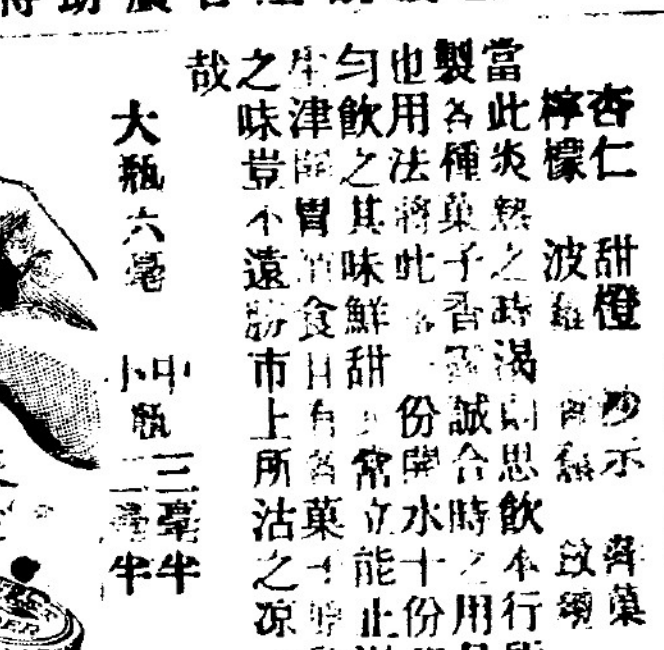 杏仁 甜橙 沙示 蘋菓
檸檬 波羅
當此炎熱之時渴則思飲本行所
製各種菓子香露誠合時之用
也用法將此露一份開水十份
勻飲之其味鮮甜異常立能止
生津開胃消食且有各菓子
之味豈不遠勝市上所沽之凉
哉
大瓶六毫 中小瓶 三毫半 二毫半